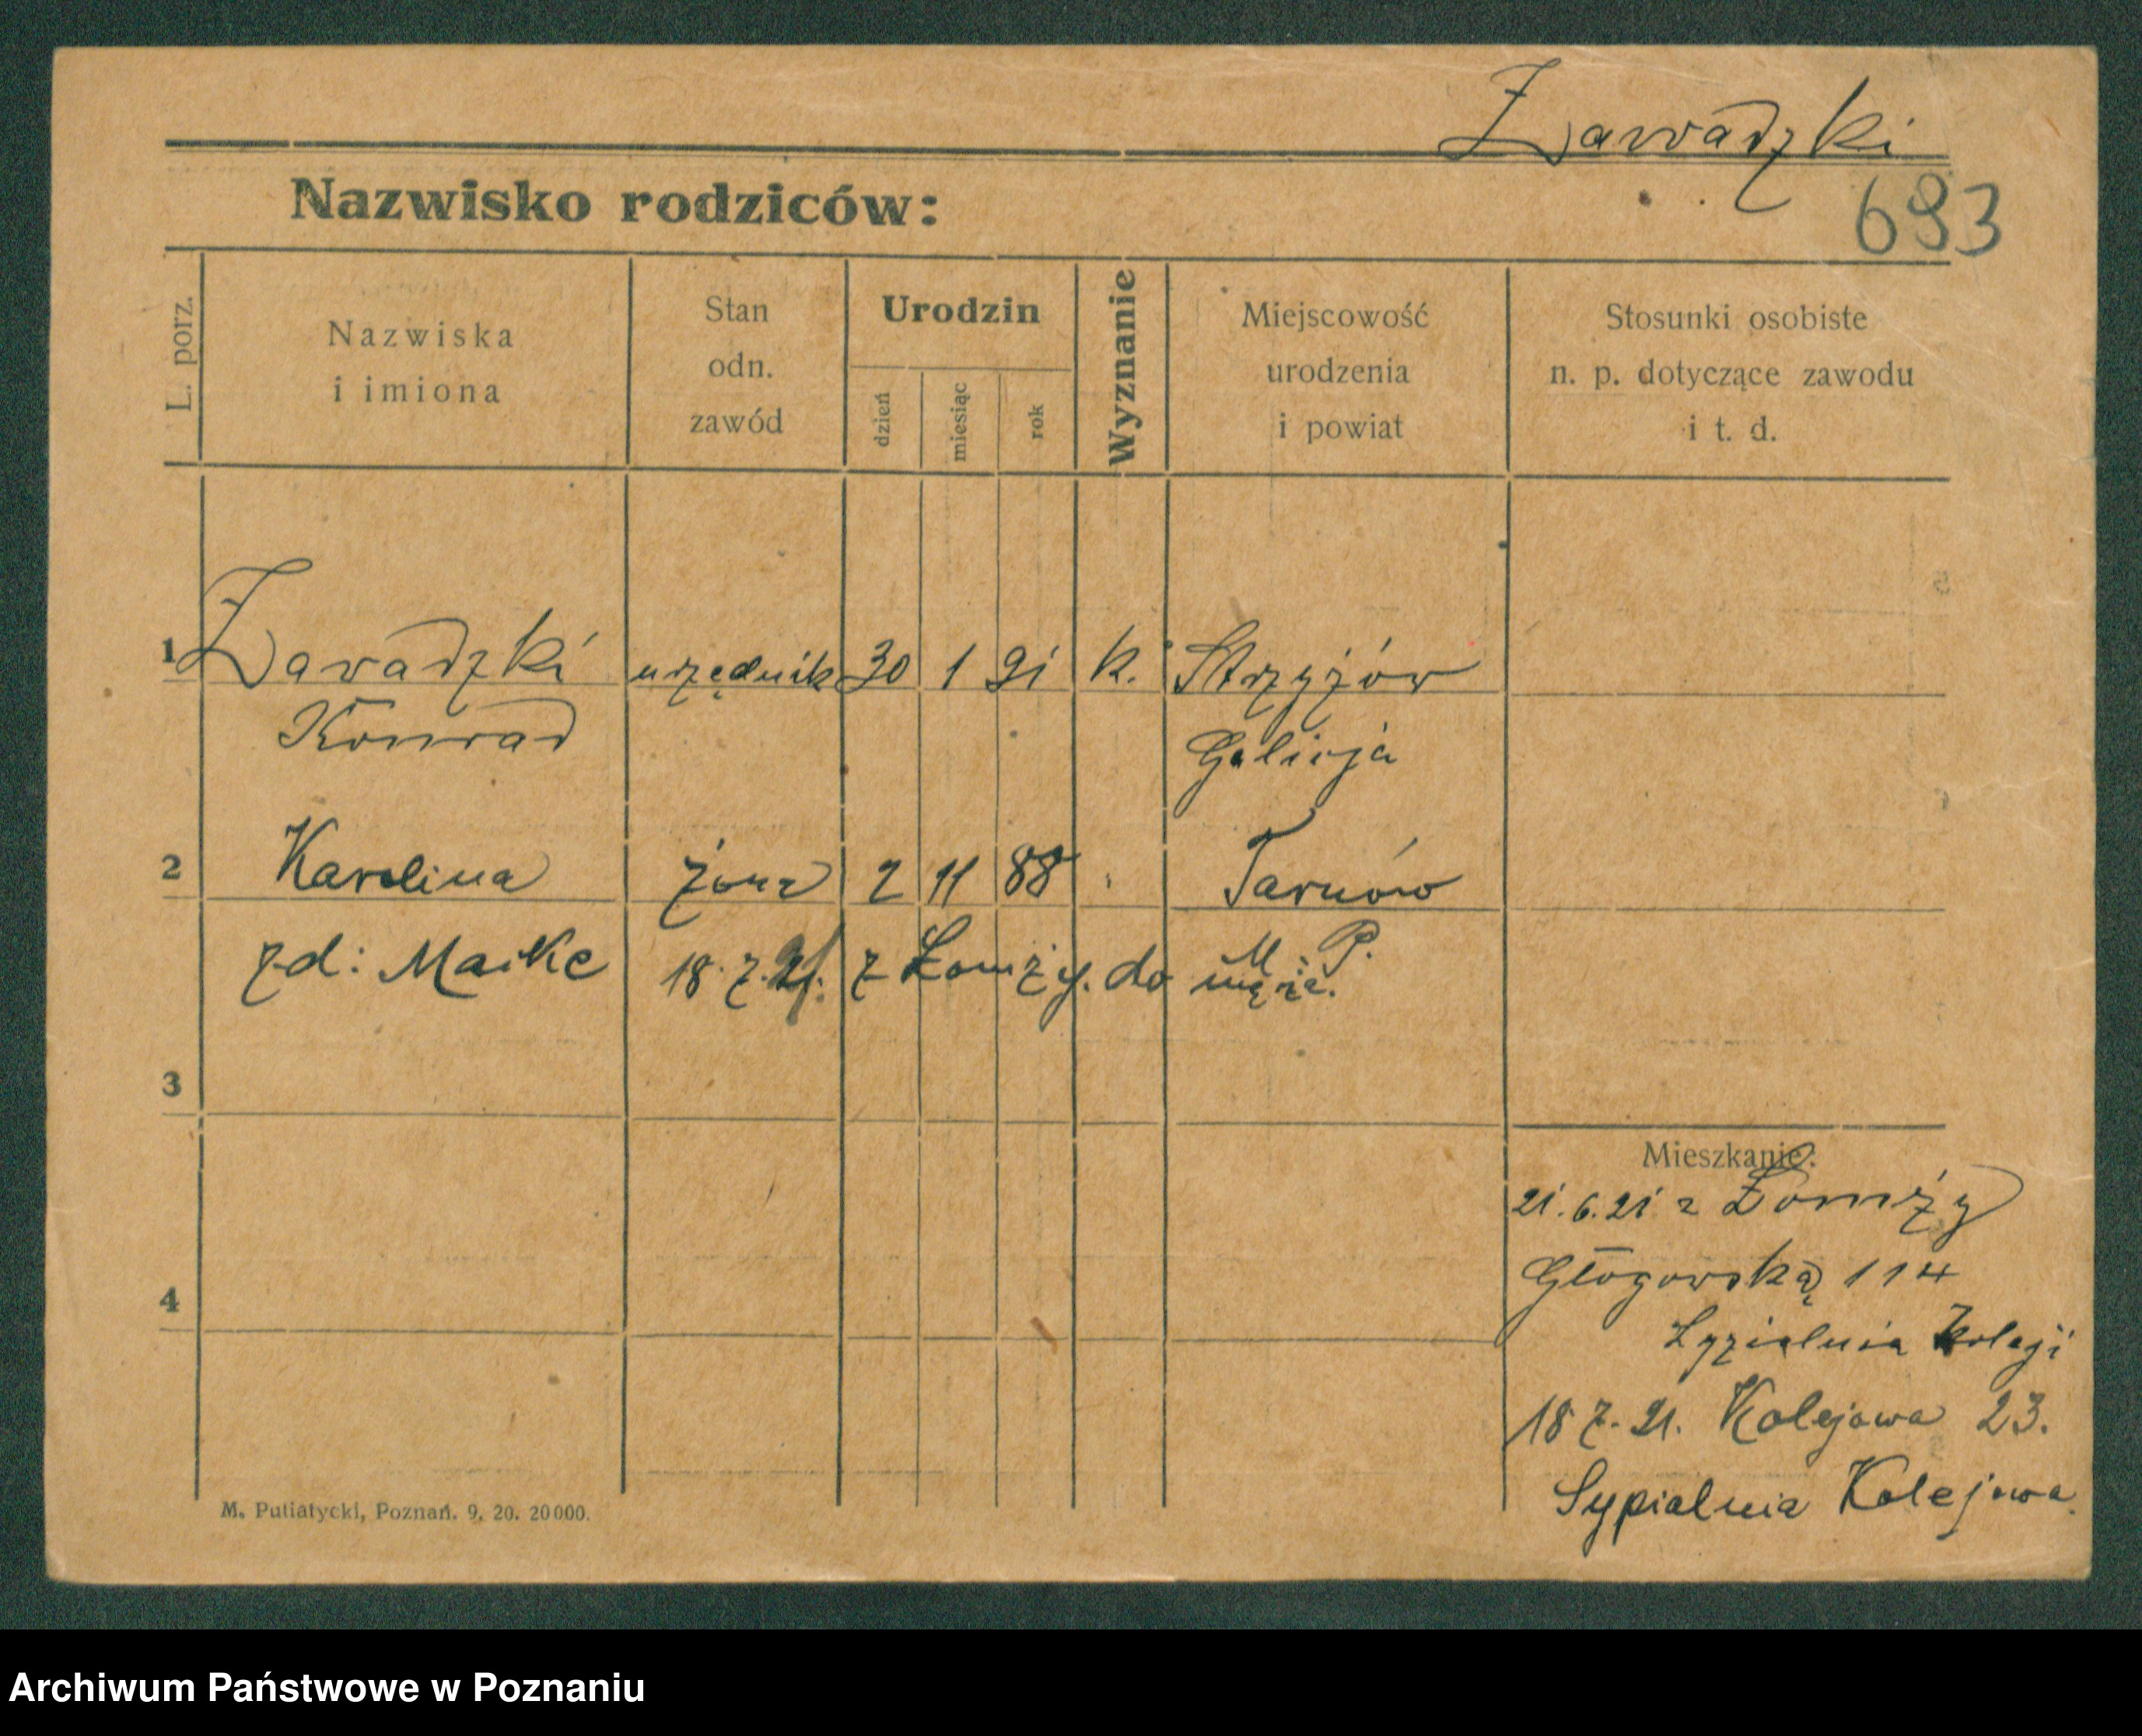 Zawadzki
Nazwisko rodziców:
693
L. porz.
Nazwiska
i imiona
Stan
odn.
zawód
Urodzin
dzień
miesiąc
rok
Wyznanie
Miejscowość
urodzenia
i powiat
Stosunki osobiste
n. p. dotyczące zawodu
i t. d.
1 Zawadzki urzędnik 30 1 91 k. Strzyżów
Konrad Galicja
2 Karolina żona 2 11 88 Tarnów
M. P.
zd: 18.7.21. z Łomży. do męża.
3
4
Mieszkanie:
21.6.21 z Łomży
Głogowską 114
kolej
18 7. 21. Kolejowa 23.
Sypialnia Kolejowa.
M. Putiatycki, Poznań. 9. 20. 20000.
Archiwum Państwowe w Poznaniu